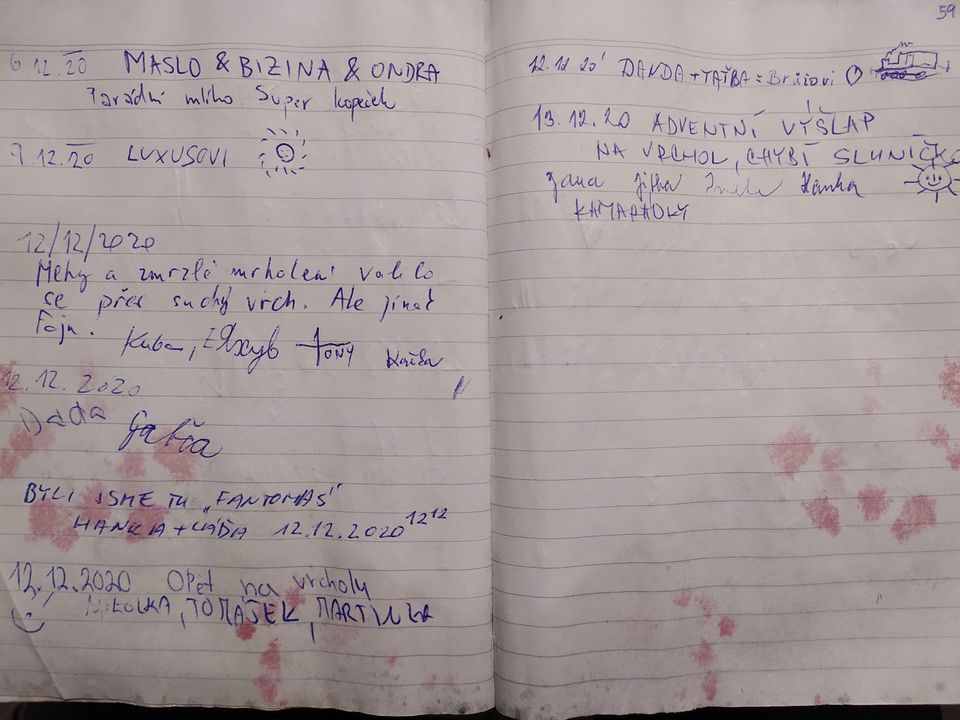 6.12.20 MASLO & BIZINA & ONDRA
Parádní mlíko. Super kopeček
7.12.20 LUXUSOVI
12/12/2020
Mlhy a zmrzlé mrholení valilo
se přes suchý vrch. Ale jinač
Fajn.
Kuba, TONY
12.12.2020
Dada Gabča
BYLI JSME TU „FANTOMAS“
HANKA + LÁĎA 12.12.2020 12 12
12.12.2020 Opět na vrcholu
NIKOLKA, TOMÁŠEK, MARTINKA
59
12.12.20 DANDA + TAŤBA
13.12.20 ADVENTNÍ VÝŠLAP
NA VRCHOL, CHYBÍ SLUNÍČKO
Jana Jitka Hanka
KAMARÁDKY